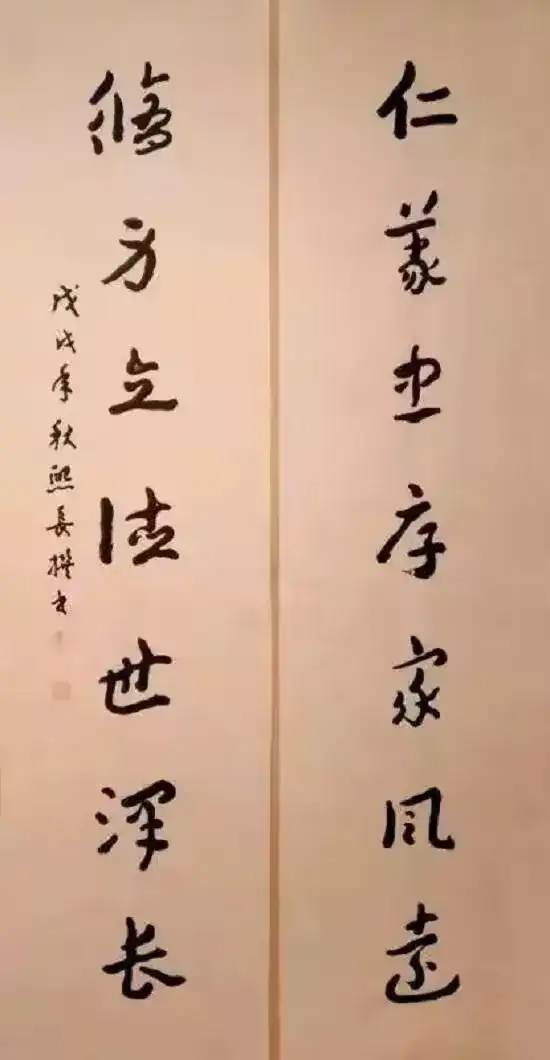 仁義忠厚家風遠
脩身立德世澤長
戊戌年秋熙長撰書